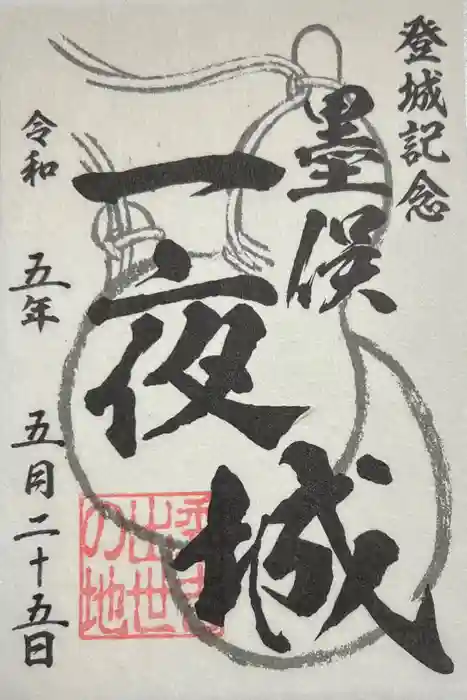 登城記念
墨俣
一夜城
令和 五年 五月二十五日
秀吉
出世
の地